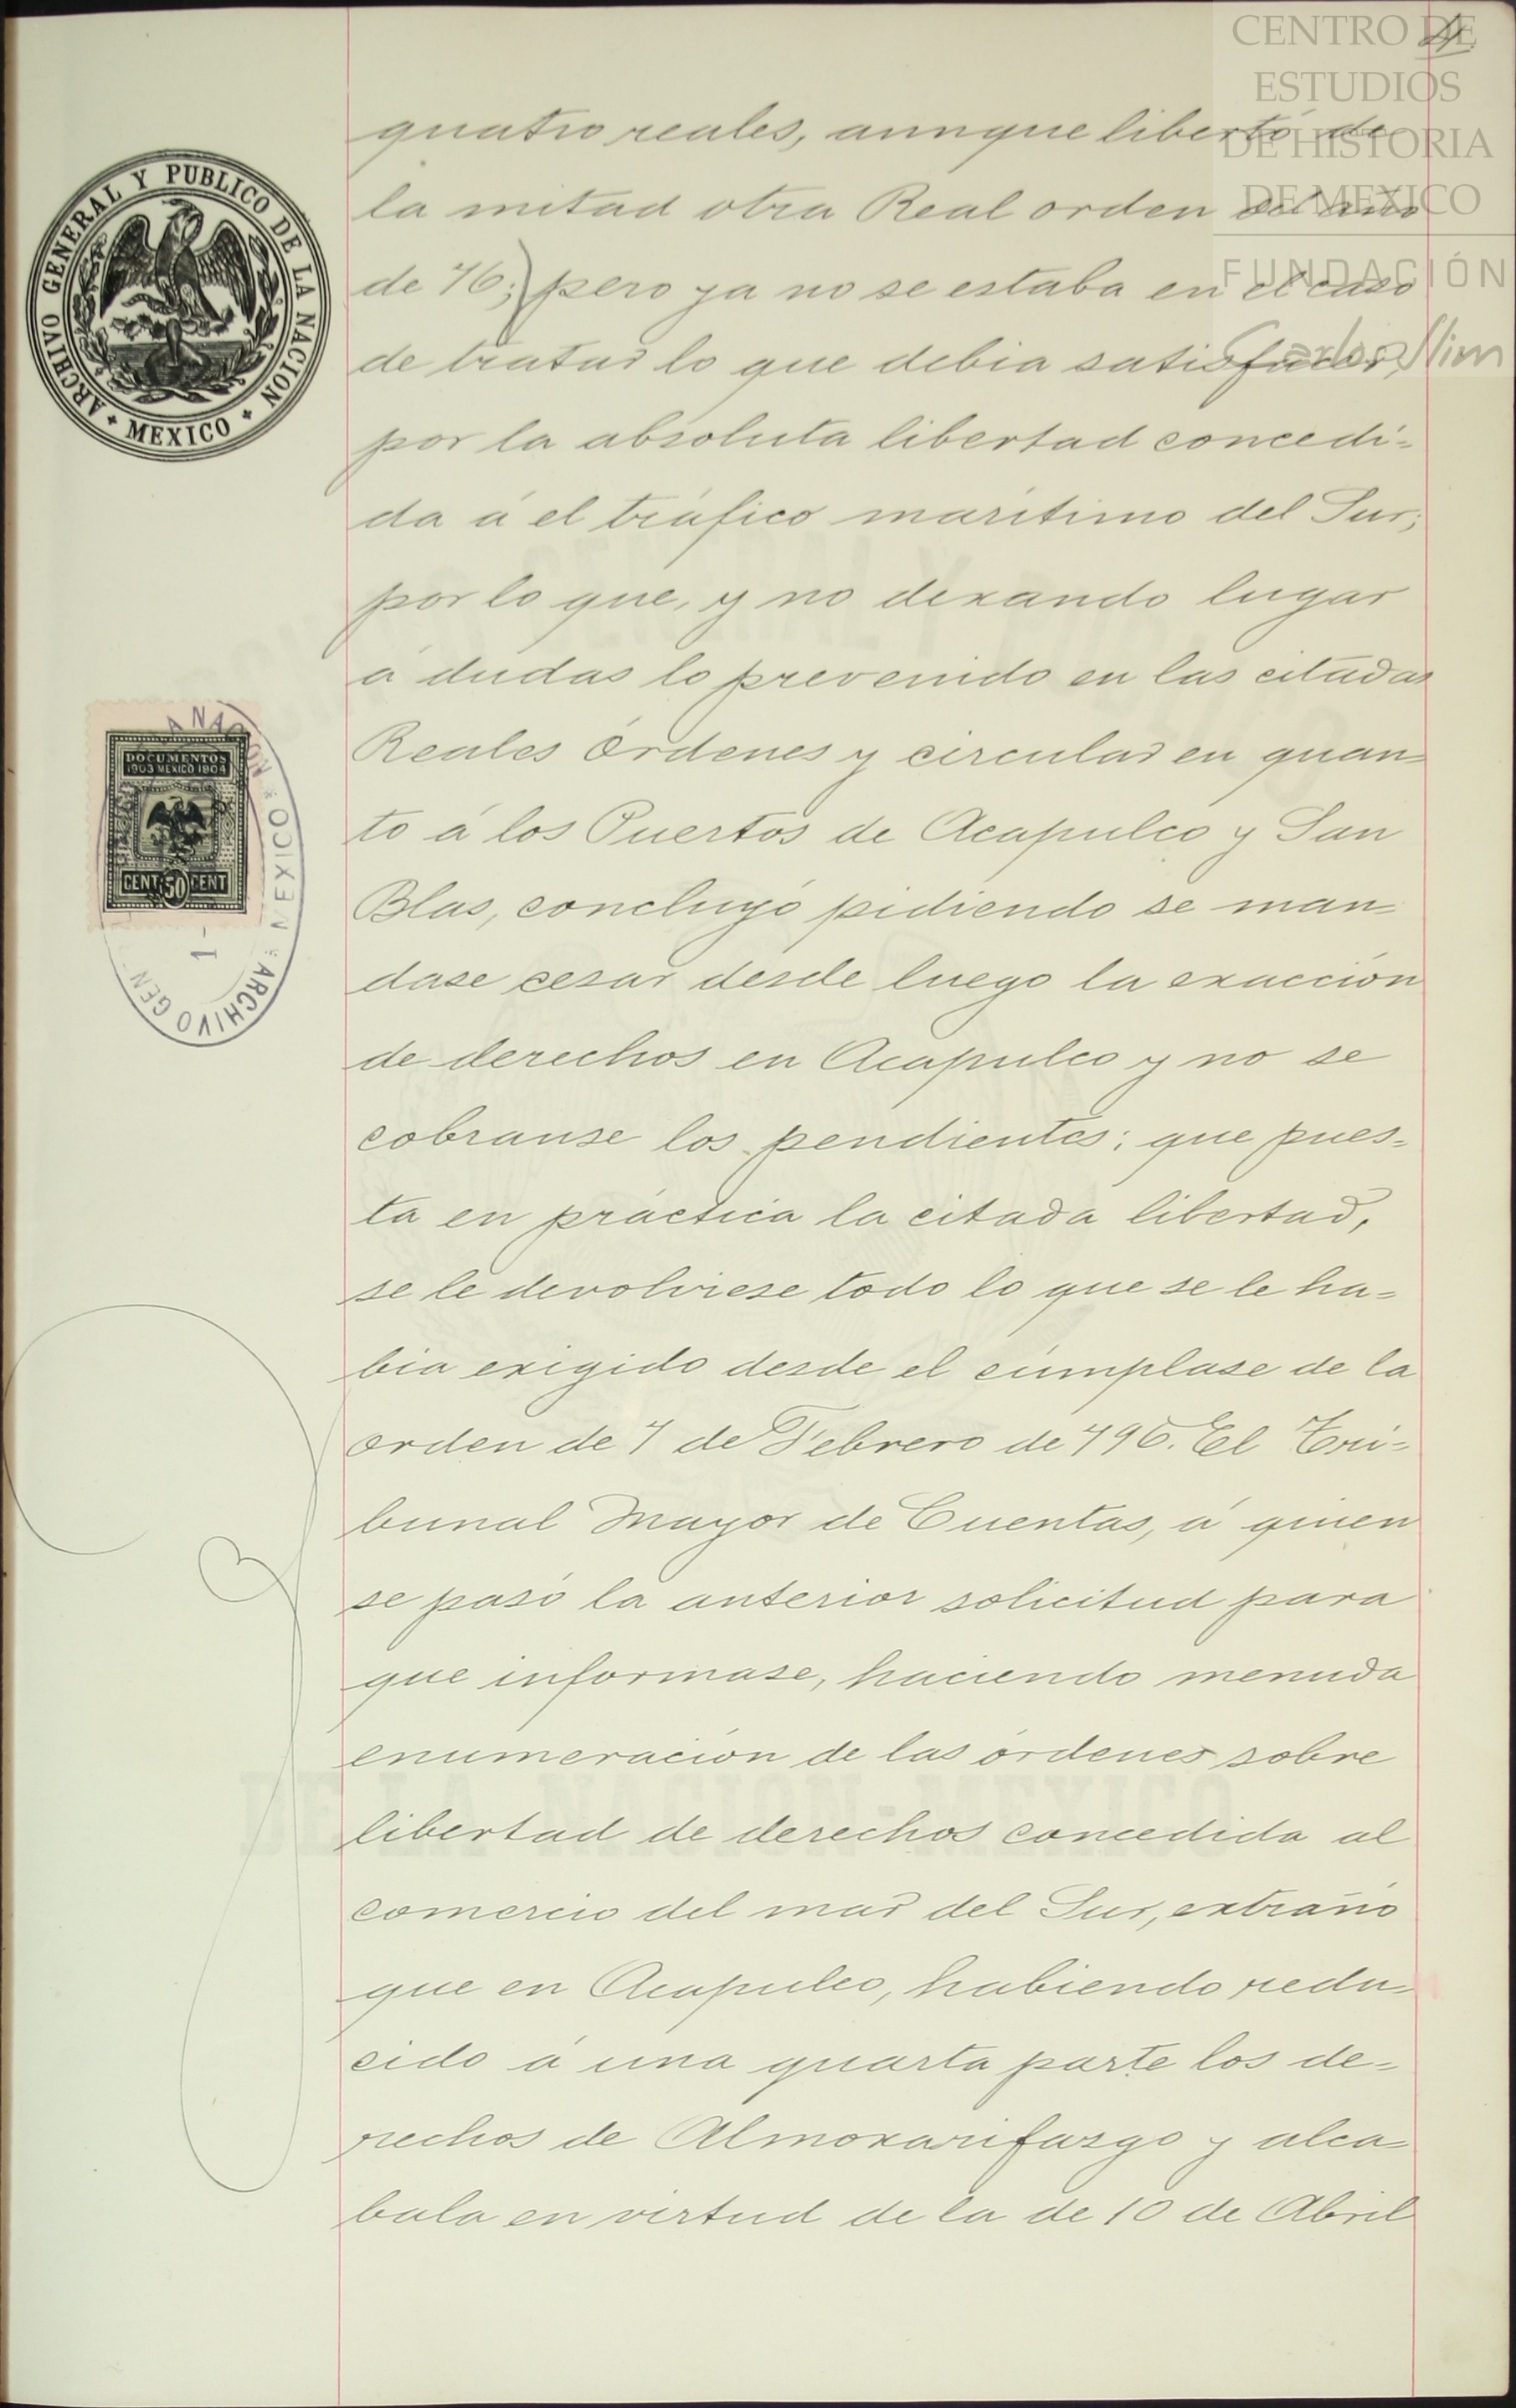 CENTRO DE
ESTUDIOS
DE HISTORIA
DE MEXICO
FUNDACIÓN
Carlos Slim
4.
ARCHIVO GENERAL Y PUBLICO DE LA NACION
MEXICO
quatro reales, aunque libertó de
la mitad otra Real orden del año
de 76;) pero ya no se estaba en el caso
de tratar lo que debia satisfacer,
por la absoluta libertad concedi-
da á el tráfico marítimo del Sur;
por lo que, y no dexando lugar
á dudas lo prevenido en las citadas
Reales Órdenes y circular en quan-
to á los Puertos de Acapulco y San
Blas, concluyó pidiendo se man-
dase cesar desde luego la exacción
de derechos en Acapulco y no se
cobranse los pendientes; que pues-
ta en práctica la citada libertad,
se le devolviese todo lo que se le ha-
bia exigido desde el cúmplase de la
orden de 7 de Febrero de 796. El Tri-
bunal Mayor de Cuentas, á quien
se pasó la anterior solicitud para
que informase, haciendo menuda
enumeración de las órdenes sobre
libertad de derechos concedida al
comercio del mar del Sur, extraño
que en Acapulco, habiendo redu-
cido á una quarta parte los de-
rechos de Almoxarifasgo y alca-
bala en virtud de la de 10 de Abril
DOCUMENTOS
1903 MEXICO 1904
CENT. 50 CENT
A NACION MEXICO ARCHIVO GEN
1-
DE LA NACION-MEXICO